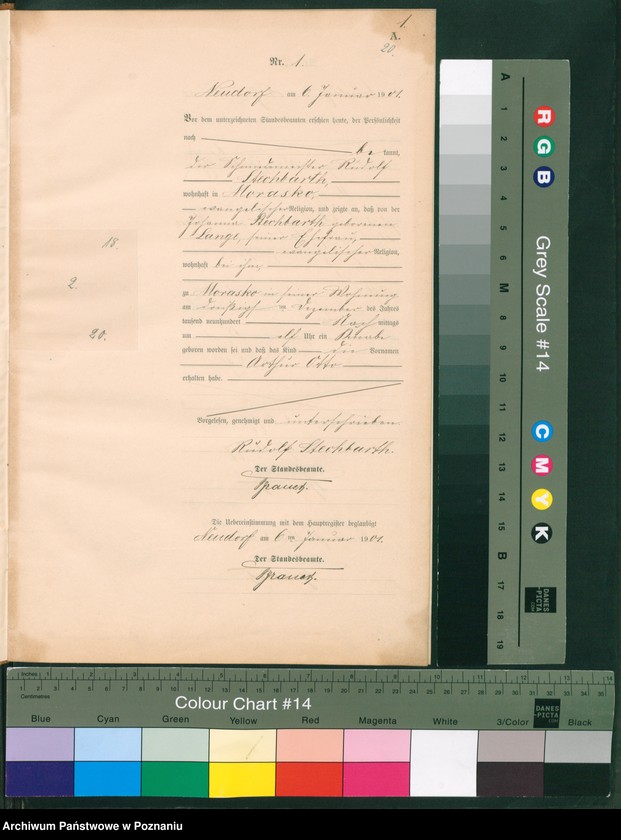 1.
A.
20.
Nr. 1.
Neudorf am 6. Januar 1901.
Vor dem unterzeichneten Standesbeamten erschien heute, der Persönlichkeit
nach
be kannt,
der Schmiedemeister Rudolf
Stechbarth,
wohnhaft in Morasko,
evangelischer Religion, und zeigte an, daß von der
Johanna Stechbarth geborenen
Lange, seiner Ehefrau,
evangelischer Religion,
wohnhaft bei ihm,
18.
2.
20.
zu Morasko in seiner Wohnung
am Dezember des Jahres
tausend neunhundert Nach mittags
um elf Uhr ein Knabe
geboren worden sei und daß das Kind die Vornamen
Arthur Otto
erhalten habe.
Vorgelesen, genehmigt und unterschrieben.
Rudolf Stechbarth.
Der Standesbeamte.
Die Uebereinstimmung mit dem Hauptregister beglaubigt
Neudorf am 6ten Januar 1901.
Der Standesbeamte.
A 1 2 3 4 5 6 M 8 9 10 11 12 13 14 15 B 17 18 19
R G B
Grey Scale #14
C M Y K
DANES-PICTA.COM
Inches 1 2 3 4 5 6 7 8 9 10 11 12 13 14
Centimetres 1 2 3 4 5 6 7 8 9 10 11 12 13 14 15 16 17 18 19 20 21 22 23 24 25 26 27 28 29 30 31 32 33 34 35
Colour Chart #14
DANES-PICTA.COM
Blue Cyan Green Yellow Red Magenta White 3/Color Black
Archiwum Państwowe w Poznaniu